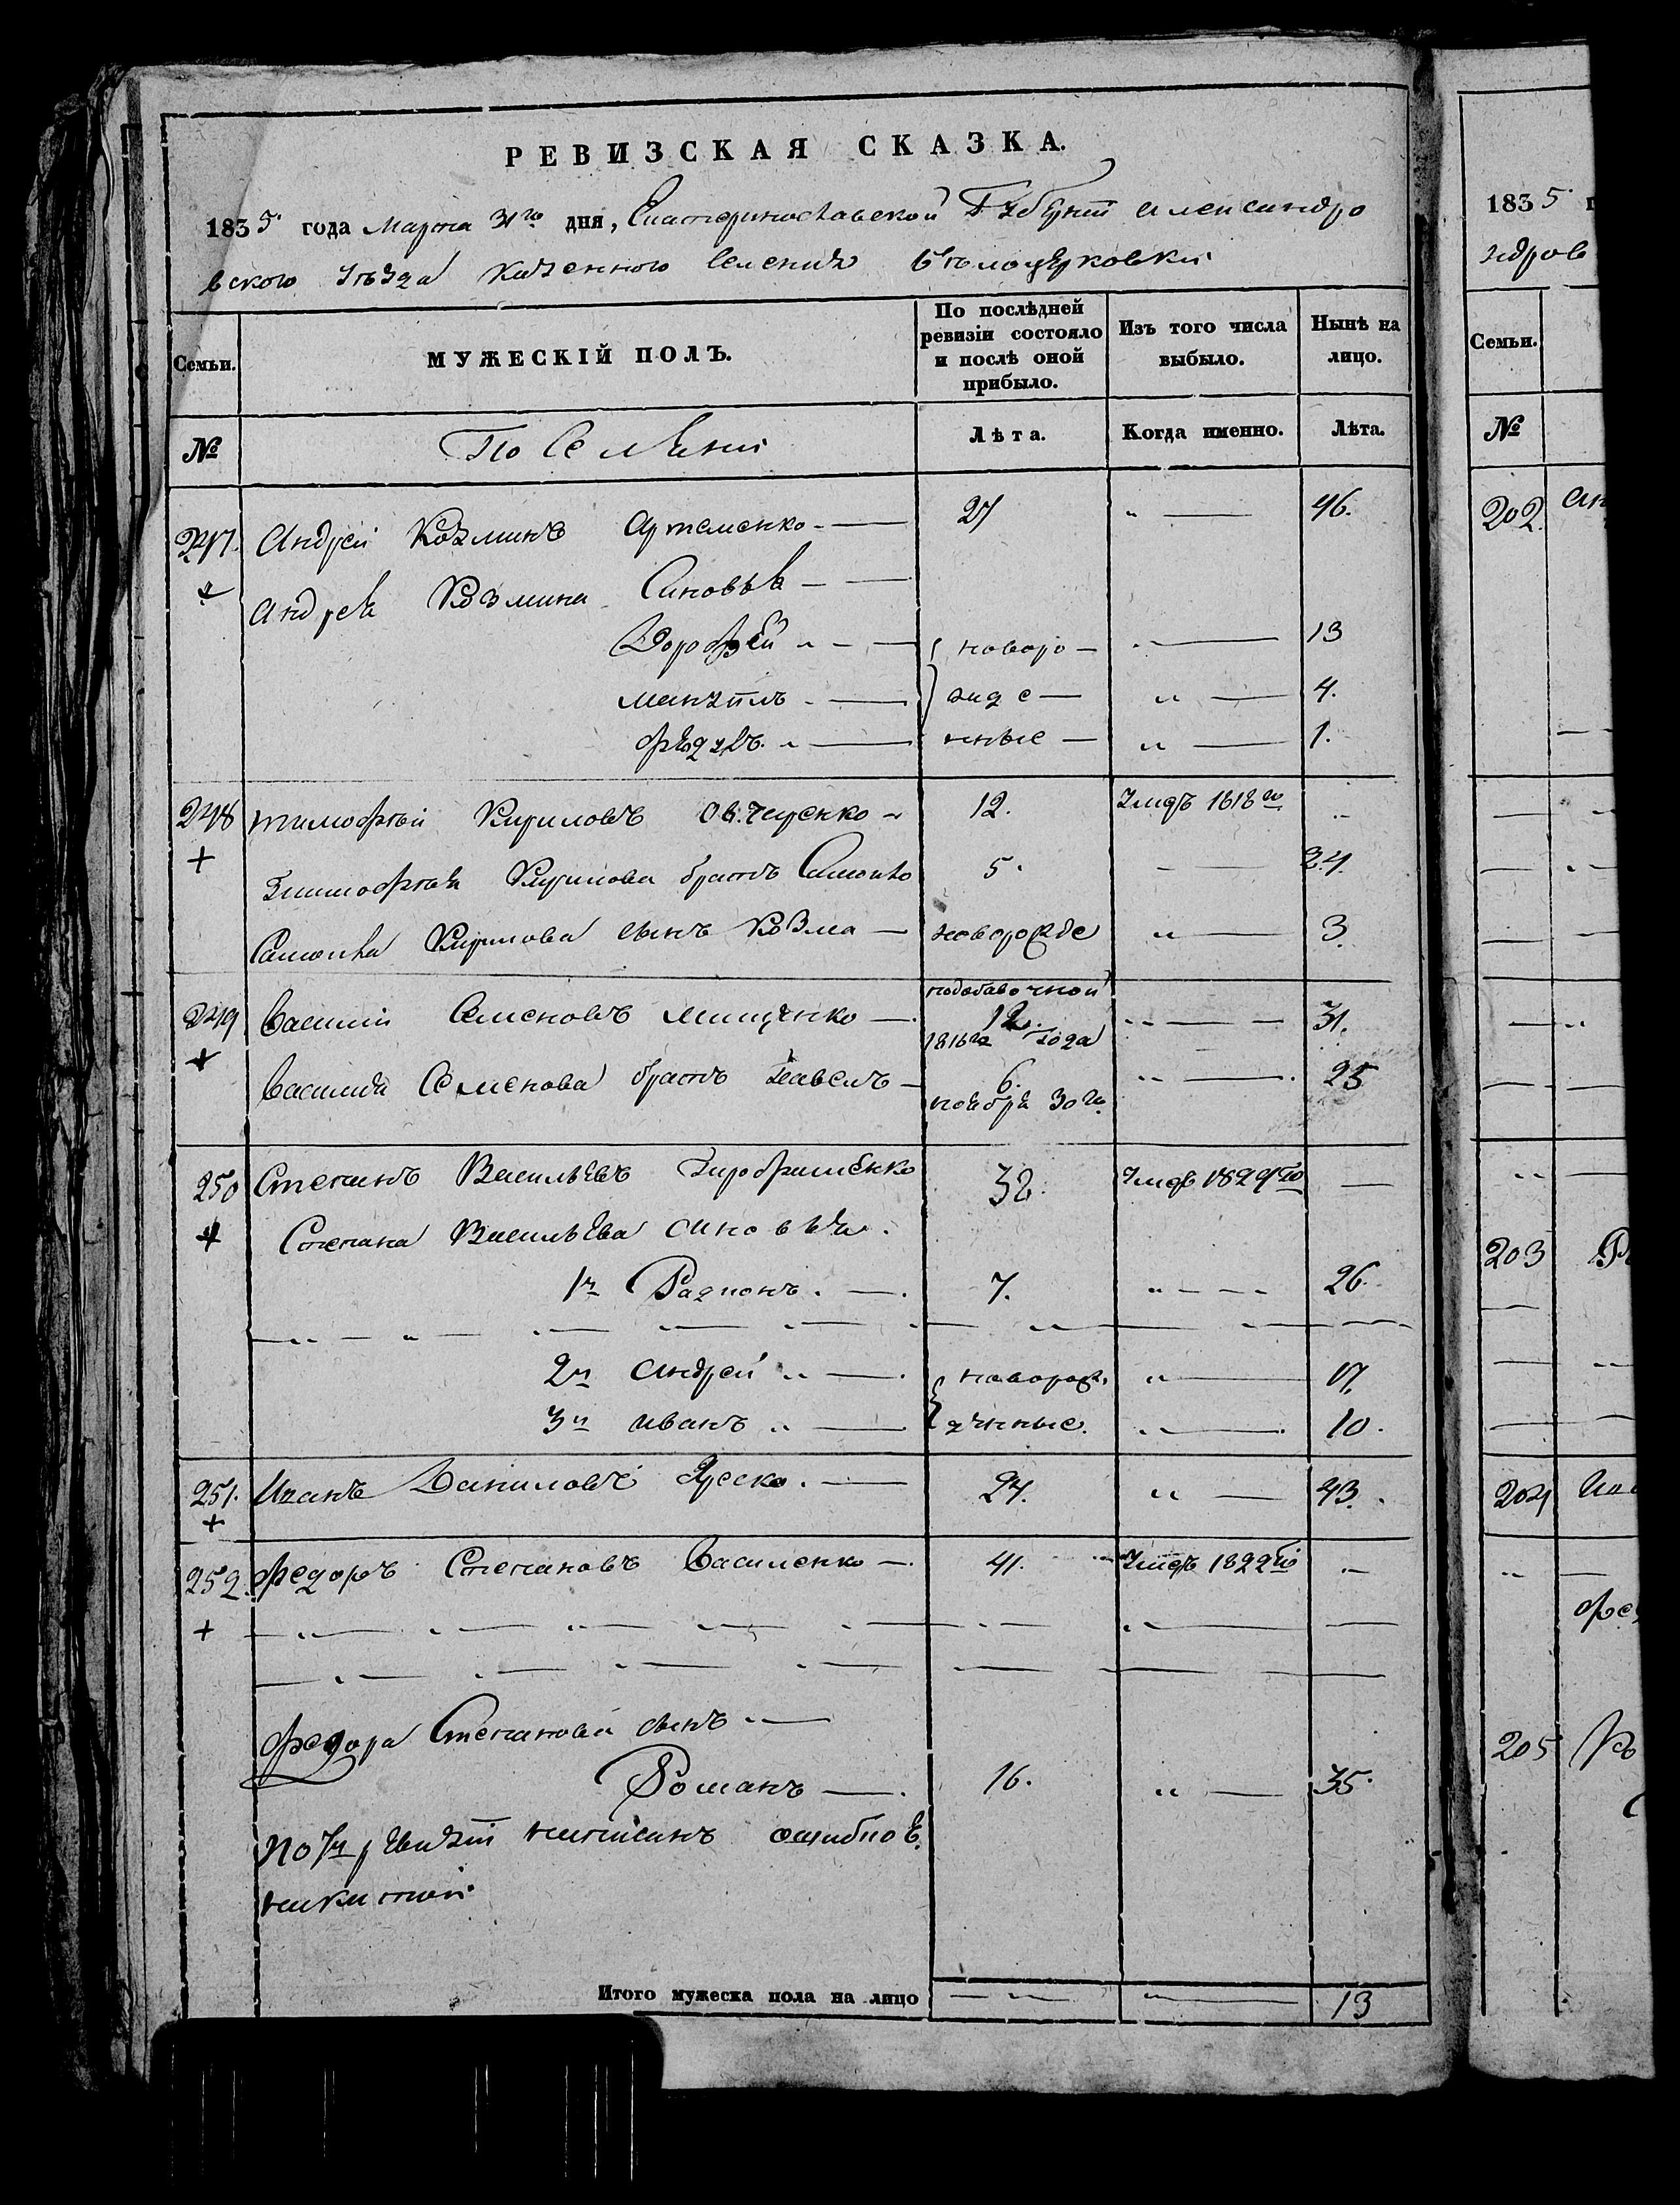 РЕВИЗСКАЯ СКАЗКА.
1835 года Марта 31го дня, Екатеринославской Губерній Александро
вского уѣзда Казенного Селения Бѣлоцерковки
Семьи. МУЖЕСКІЙ ПОЛЪ. По послѣдней ревизіи состояло и послѣ оной прибыло. Изъ того числа выбыло. Нынѣ на лицо.
№ Лѣта. Когда именно. Лѣта.
247. Андрей Козминъ Артеменко — 27 " — 46.
Андрея Козмина Синовья —
Дорофей " — — новоро — " — 13
Мануилъ — жде — " — 4.
нные — " — 1.
248 Тимофѣй Кириловъ Овчаренко 12. Умеръ 1818го "
+ Тимофѣя Кирилова братъ Самойло 5. — 24.
Самойла Кирилова сынъ Козма — новорожде " — 3.
249 Василий Семеновъ Мищенко — подобавочной 12. 1816го года " — — 31.
+ Василия Семенова братъ Павелъ — 6. ноября 30го " — 25
250 Степанъ Васильевъ 32. Умеръ 1829го —
+ Степана Васильева синовья.
1й Радионъ. —. 7. " — — — 26.
2й Андрей " —. новорож " — 17.
3й Иванъ " — денные. " — 10.
251. Иванъ Даниловъ Ереско. — 24. " — 43.
+
252. Федоръ Степановъ Василенко — 41. Умеръ 1822го "—
+
Федора Степанова сынъ —
Романъ —. 16. " — 35.
По 7й ревизіи написанъ ошибкое
никитой.
Итого мужеска пола на лицо — " — " — 13
1835 г
ндров
Семьи.
№
202. Ан
203
204
205